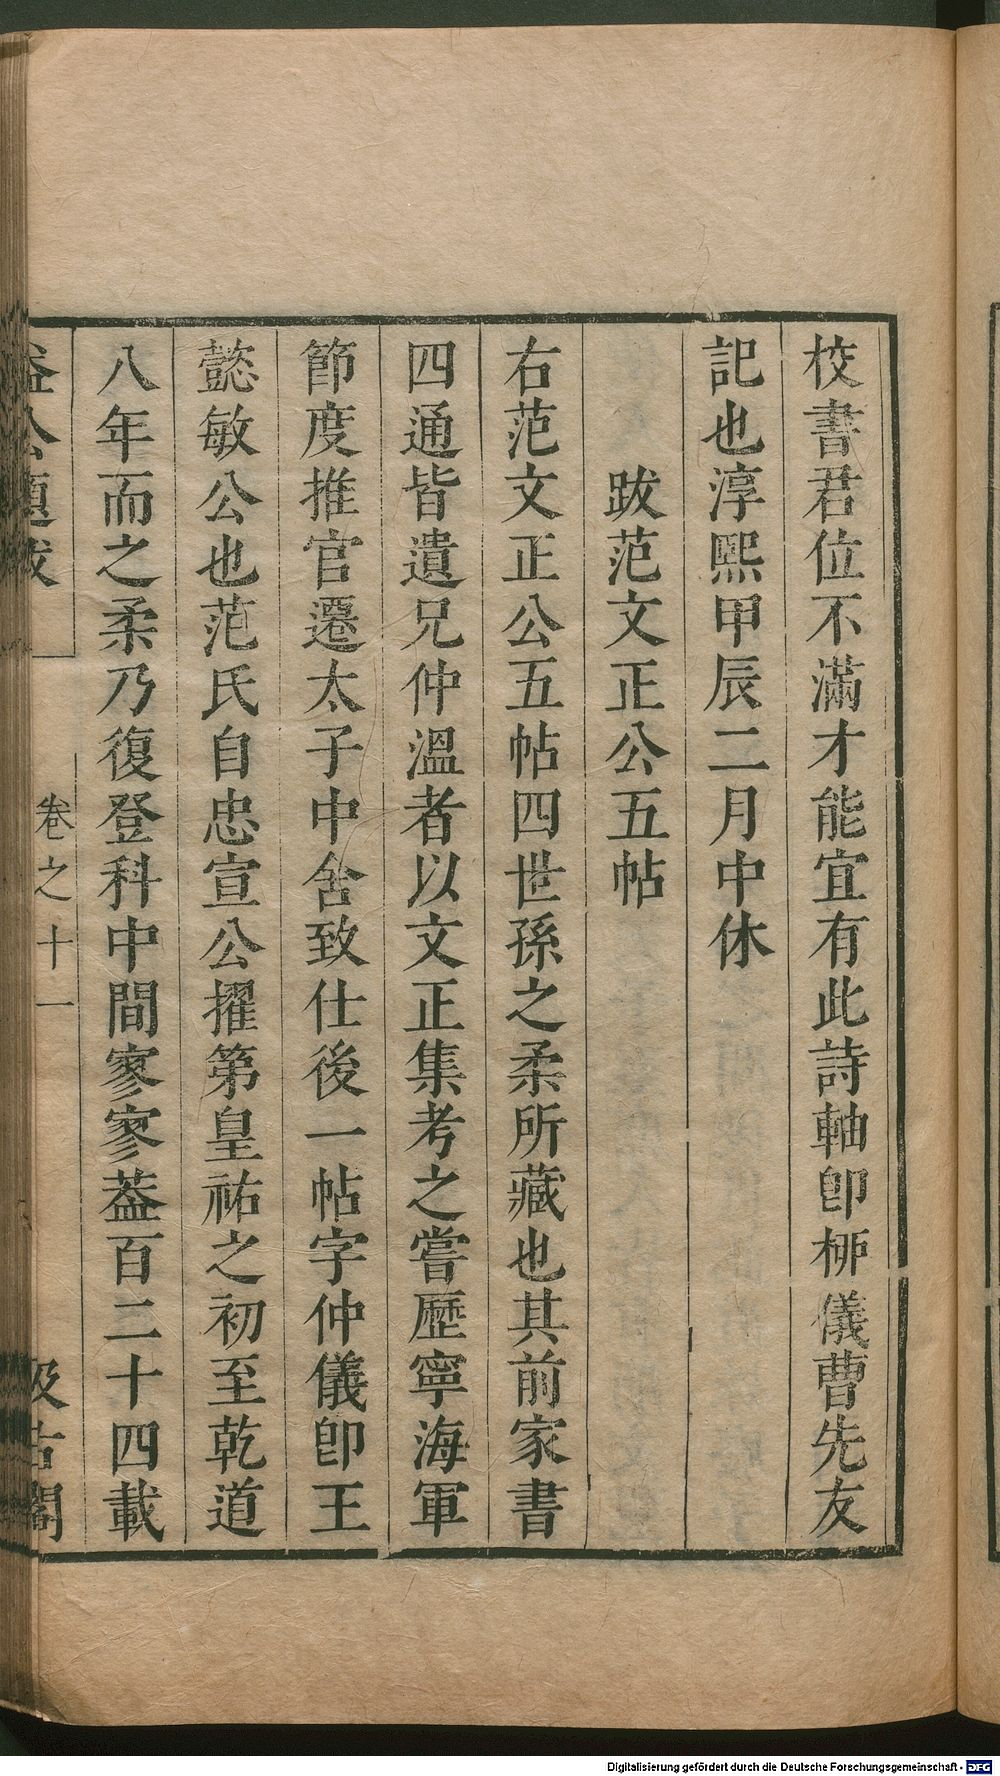 校書君位不滿才能宜有此詩軸卽栁儀曹先友
記也淳熙甲辰二月中休
跋范文正公五帖
右范文正公五帖四世孫之柔所藏也其前家書
四通皆遺兄仲溫者以文正集考之嘗歷寧海軍
節度推官遷太子中舍致仕後一帖字仲儀卽王
懿敏公也范氏自忠宣公擢第皇祐之初至乾道
八年而之柔乃復登科中間寥寥葢百二十四載
益公題跋
卷之十一
汲古閣
Digitalisierung gefördert durch die Deutsche Forschungsgemeinschaft - DFG